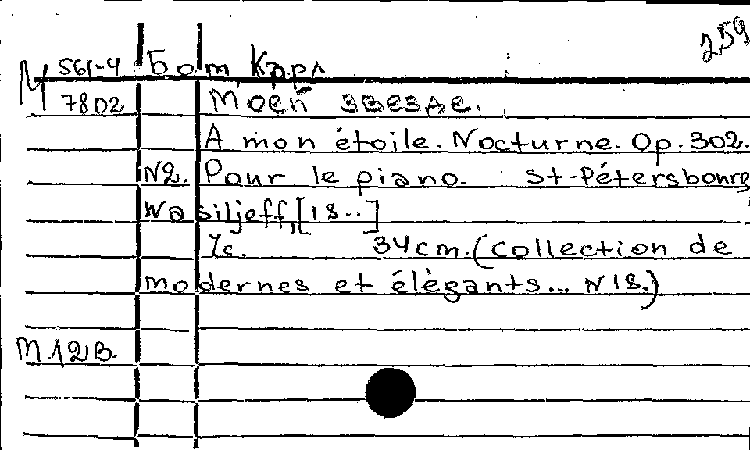 259
М 561-4 Бом, Карл
7802 Моей звезде.
A mon étoile. Nocturne. Op. 302.
N2. Pour le piano. St-Pétersbourg
Wasiljeff, [18..]
7с. 34cm. (Collection de
modernes et élégants... N 18.)
М.12В.